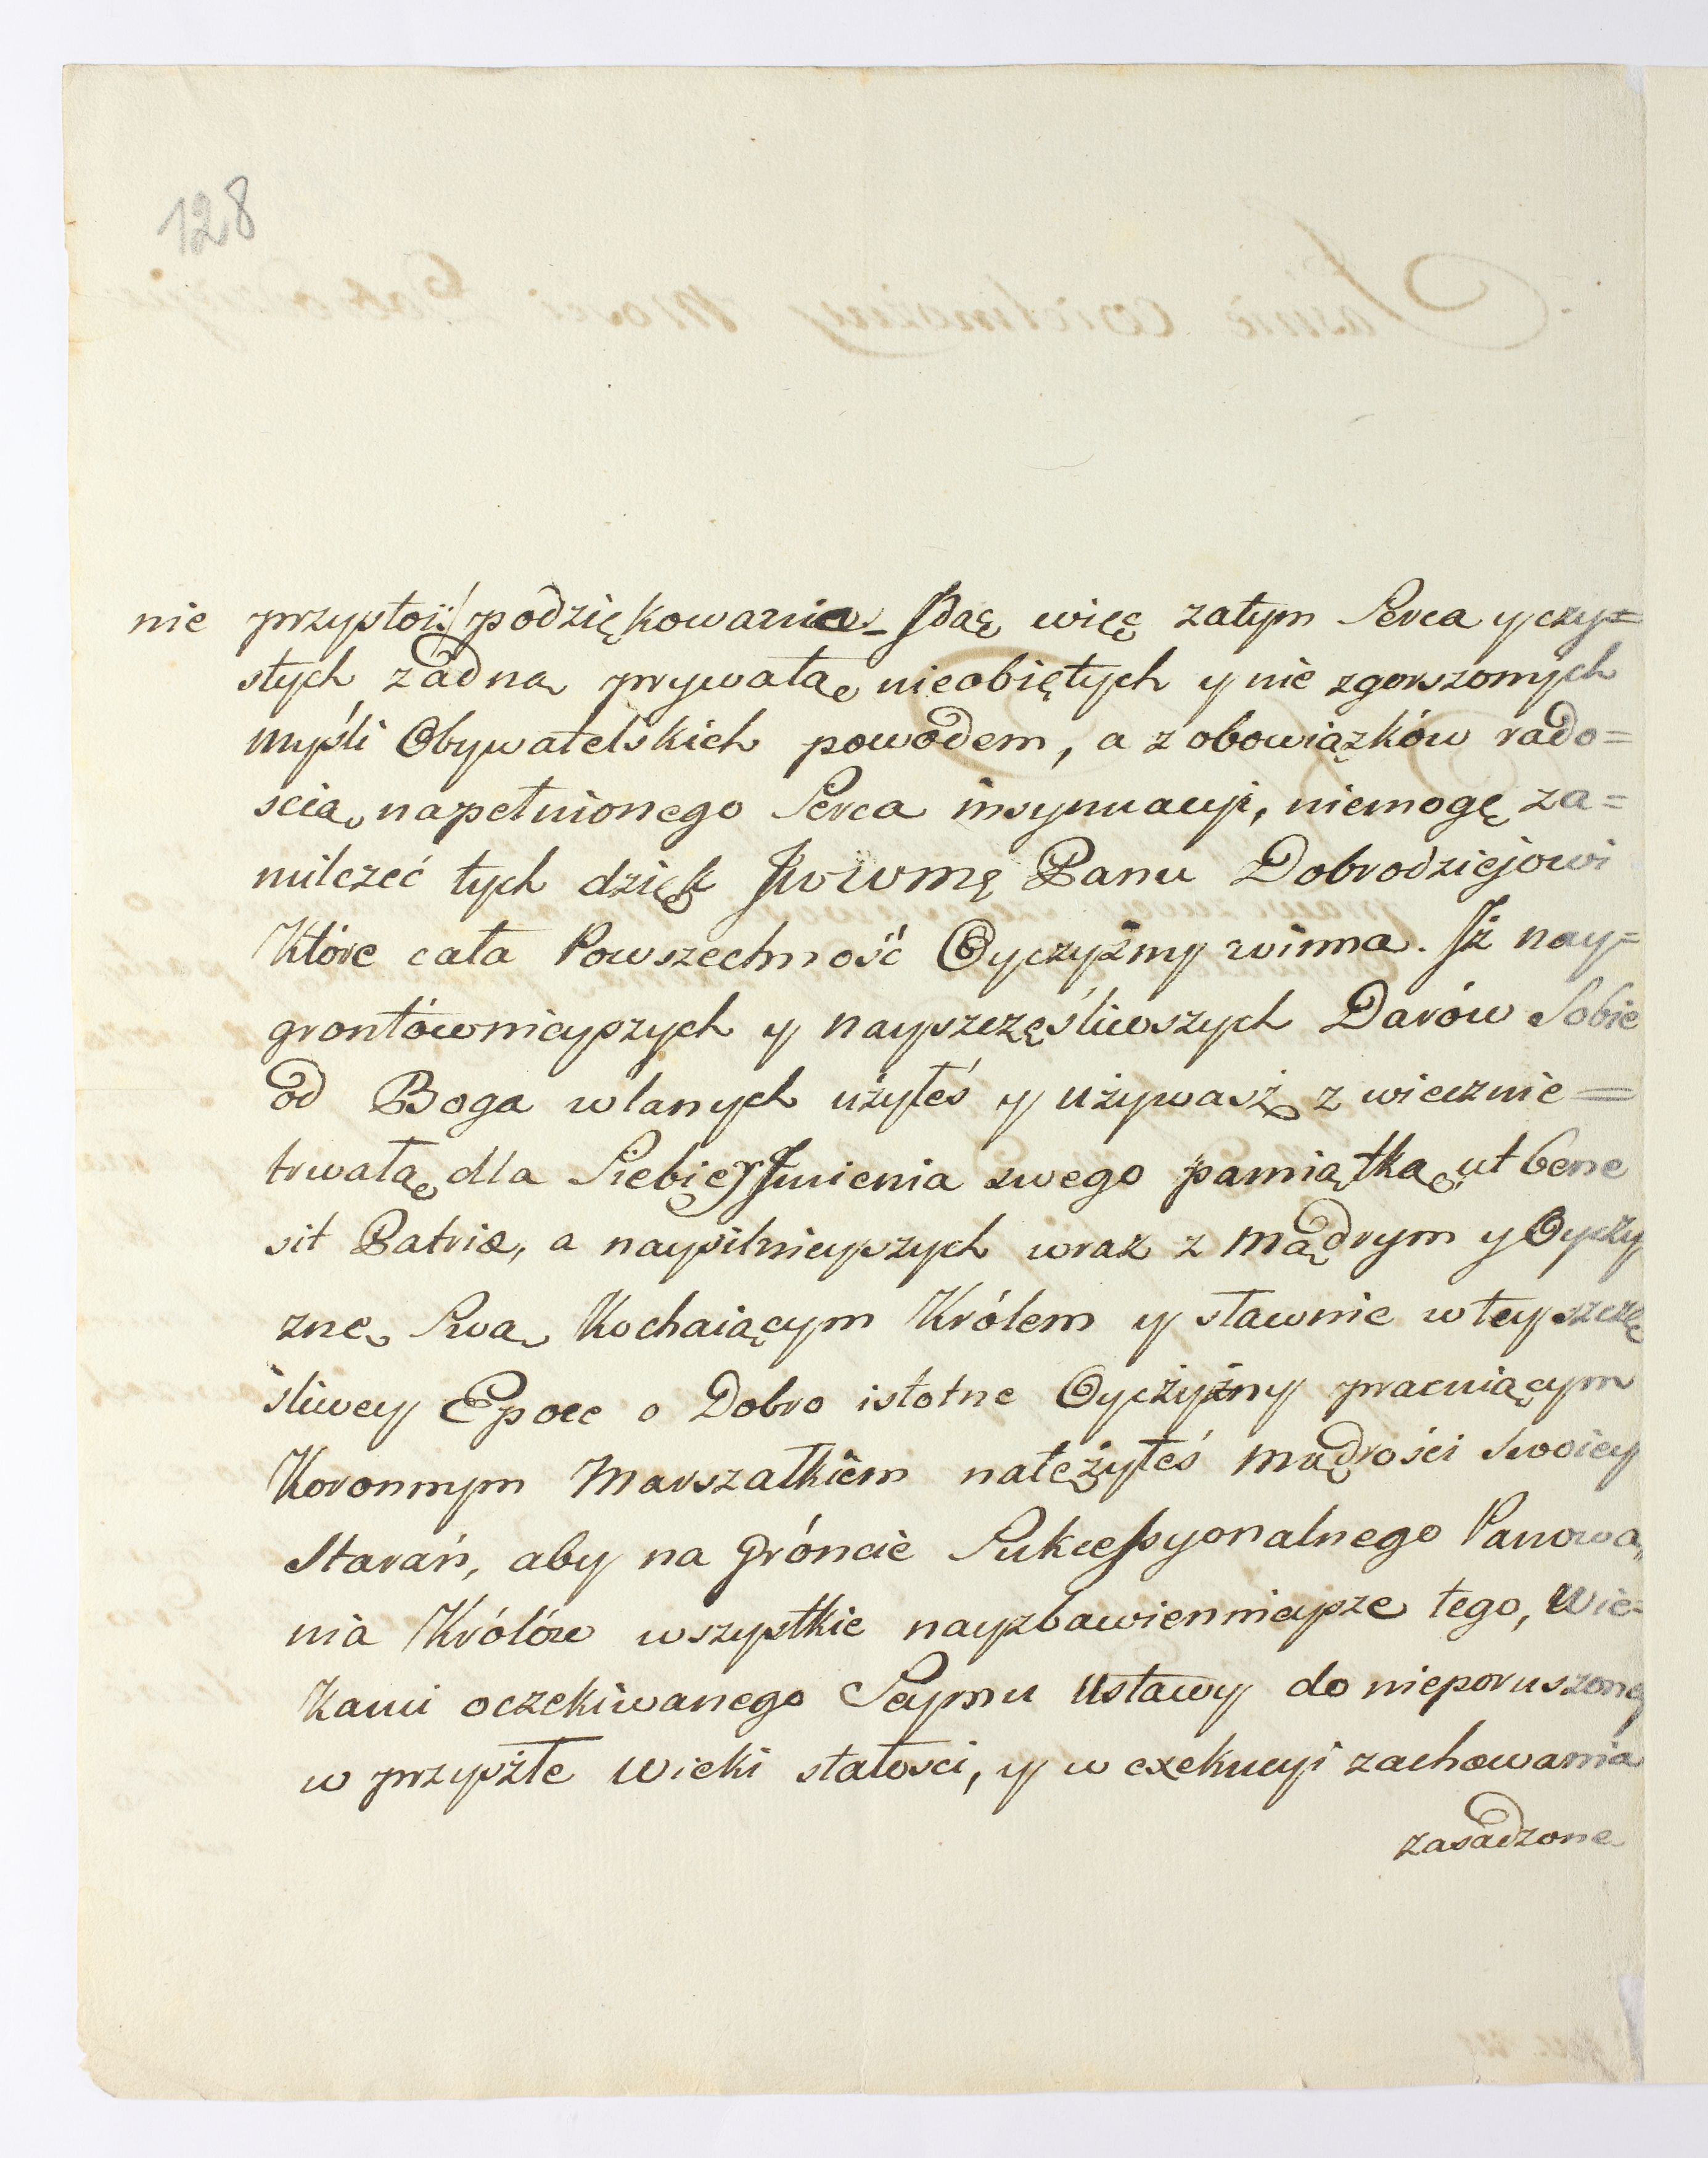 128
nie przystoi:/ podziękowania_ Jdąc więc zatym Serca y czy=
stych żadną prywatą nieobiętych y nie zgorszonych
myśli Obywatelskich powodem, a z obowiązków rado=
scią napełnionego Serca insynuacyi, niemogę za=
milczeć tych dzięk JWWmę Panu Dobrodziejowi
Które cała Powszechność Oyczyzny winna. Jż nay=
grontównieyszych y nayszczęśliwszych Darów Sobie
od Boga wlanych użyłeś y używasz z wiecznie=
trwałą dla Siebie y Jmienia swego pamiątką ut bene
sit Patriæ, a naysilnieyszych wraz z mądrym y Oyczy
znę Swą Kochaiącym Królem y sławnie w tey szczę
śliwey Epoce o Dobro istotne Oyczyzny pracuiącym
Koronnym Marszałkiem natężyłeś mądrości Swoiey
Starań, aby na gróncie Sukcessyonalnego Panowa„
nia Królów wszystkie nayzbawiennieysze tego, Wie=
kami oczekiwanego Seymu Ustawy do nieporuszoney
w przyszłe Wieki stałosci, y w exekucyi zachowania
zasadzone